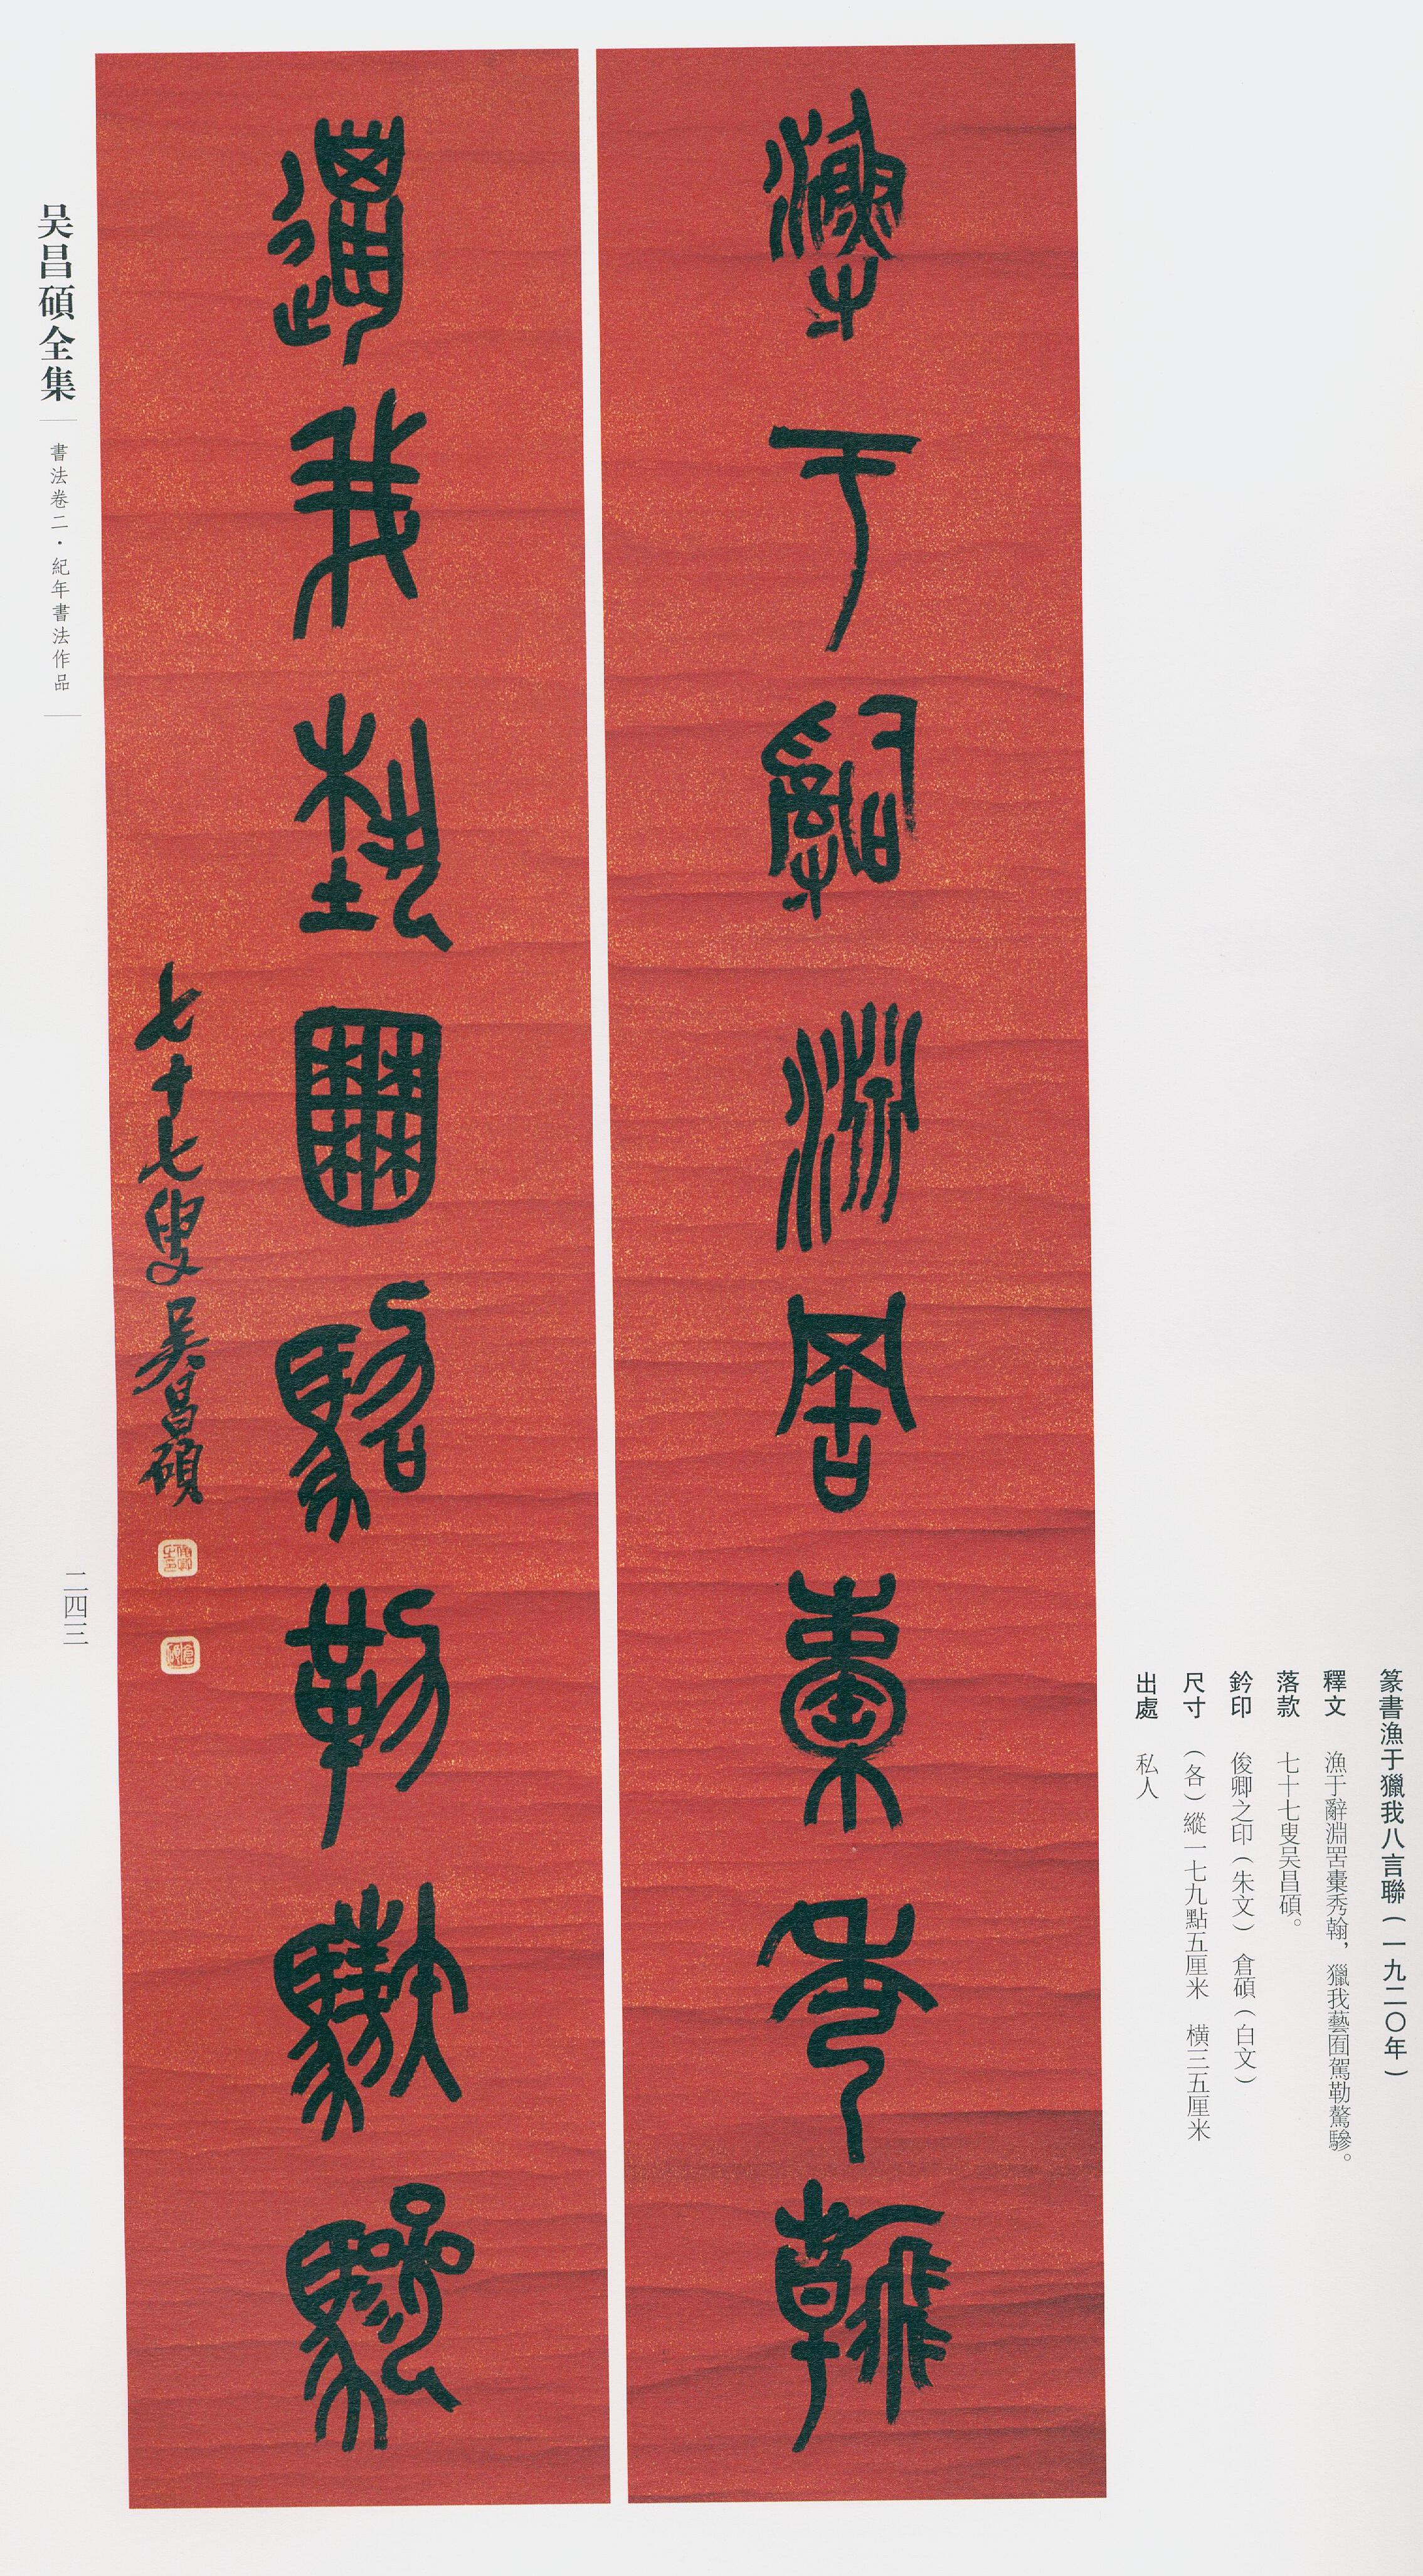 篆書漁于獵我八言聯(一九二〇年)
釋文 漁于辭淵罟橐秀翰,獵我藝囿駕勒驁驂。
落款 七十七叟吴昌碩。
鈐印 俊卿之印(朱文) 倉碩(白文)
尺寸 (各)縱一七九點五厘米 橫三五厘米
出處 私人
漁于辭淵罟橐秀翰
獵我藝囿駕勒驁驂
七十七叟吴昌碩
俊卿之印
倉碩
吴昌碩全集
書法卷二·紀年書法作品
二四三